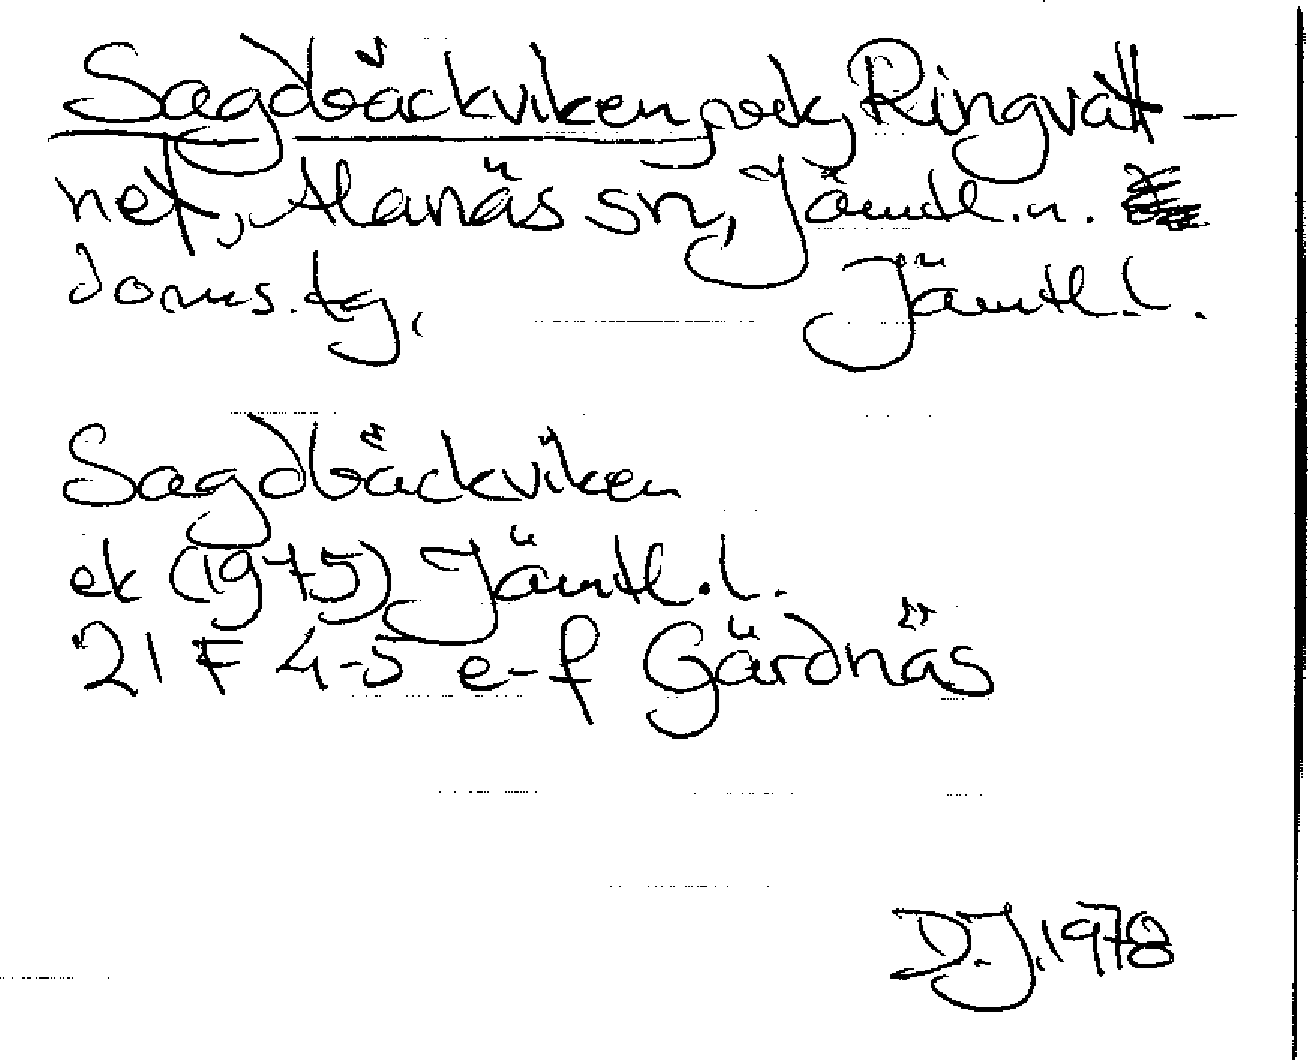 Sagdbäckviken, Ringvatt-
net, Alanäs sn, Jämtl.n.
doms.tg, Jämtl.l.
Sagdbäckviken
ek (1975) Jämtl.l.
21 F 4-5 e-f Gärdnäs
D.J. 1978